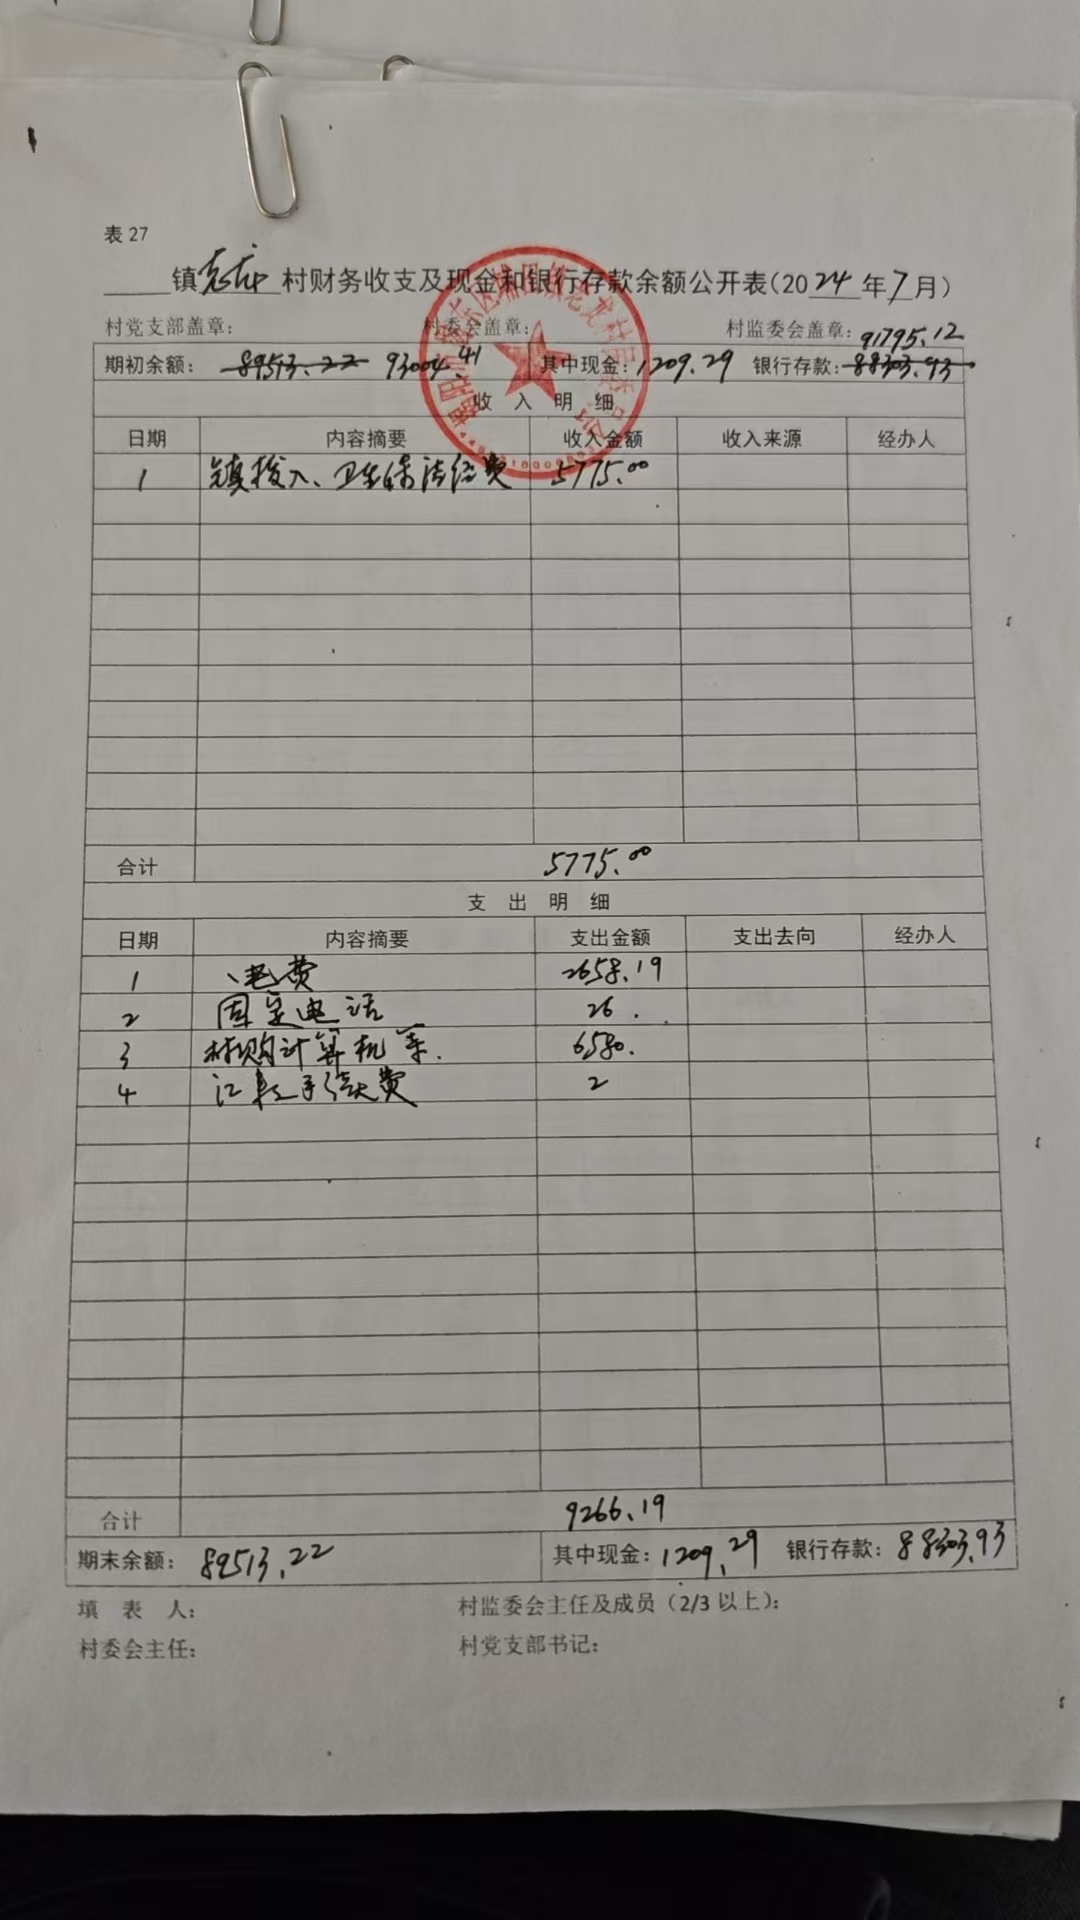 表 27
镇老龙村财务收支及现金和银行存款余额公开表(2024年7月)
村党支部盖章: 村委会盖章: 村监委会盖章: 91795.12
期初余额: 89513.22 93004.41 其中现金: 1209.29 银行存款: 88303.93
收 入 明 细
日期 内容摘要 收入金额 收入来源 经办人
1 镇拨入、卫生保洁经费 5775.00
合计 5775.00
支 出 明 细
日期 内容摘要 支出金额 支出去向 经办人
1 电费 2658.19
2 固定电话 26.
3 村购计算机等. 6580.
4 汇款手续费 2
合计 9266.19
期末余额: 89513.22 其中现金: 1209.29 银行存款: 88303.93
填 表 人: 村监委会主任及成员（2/3 以上）:
村委会主任: 村党支部书记: